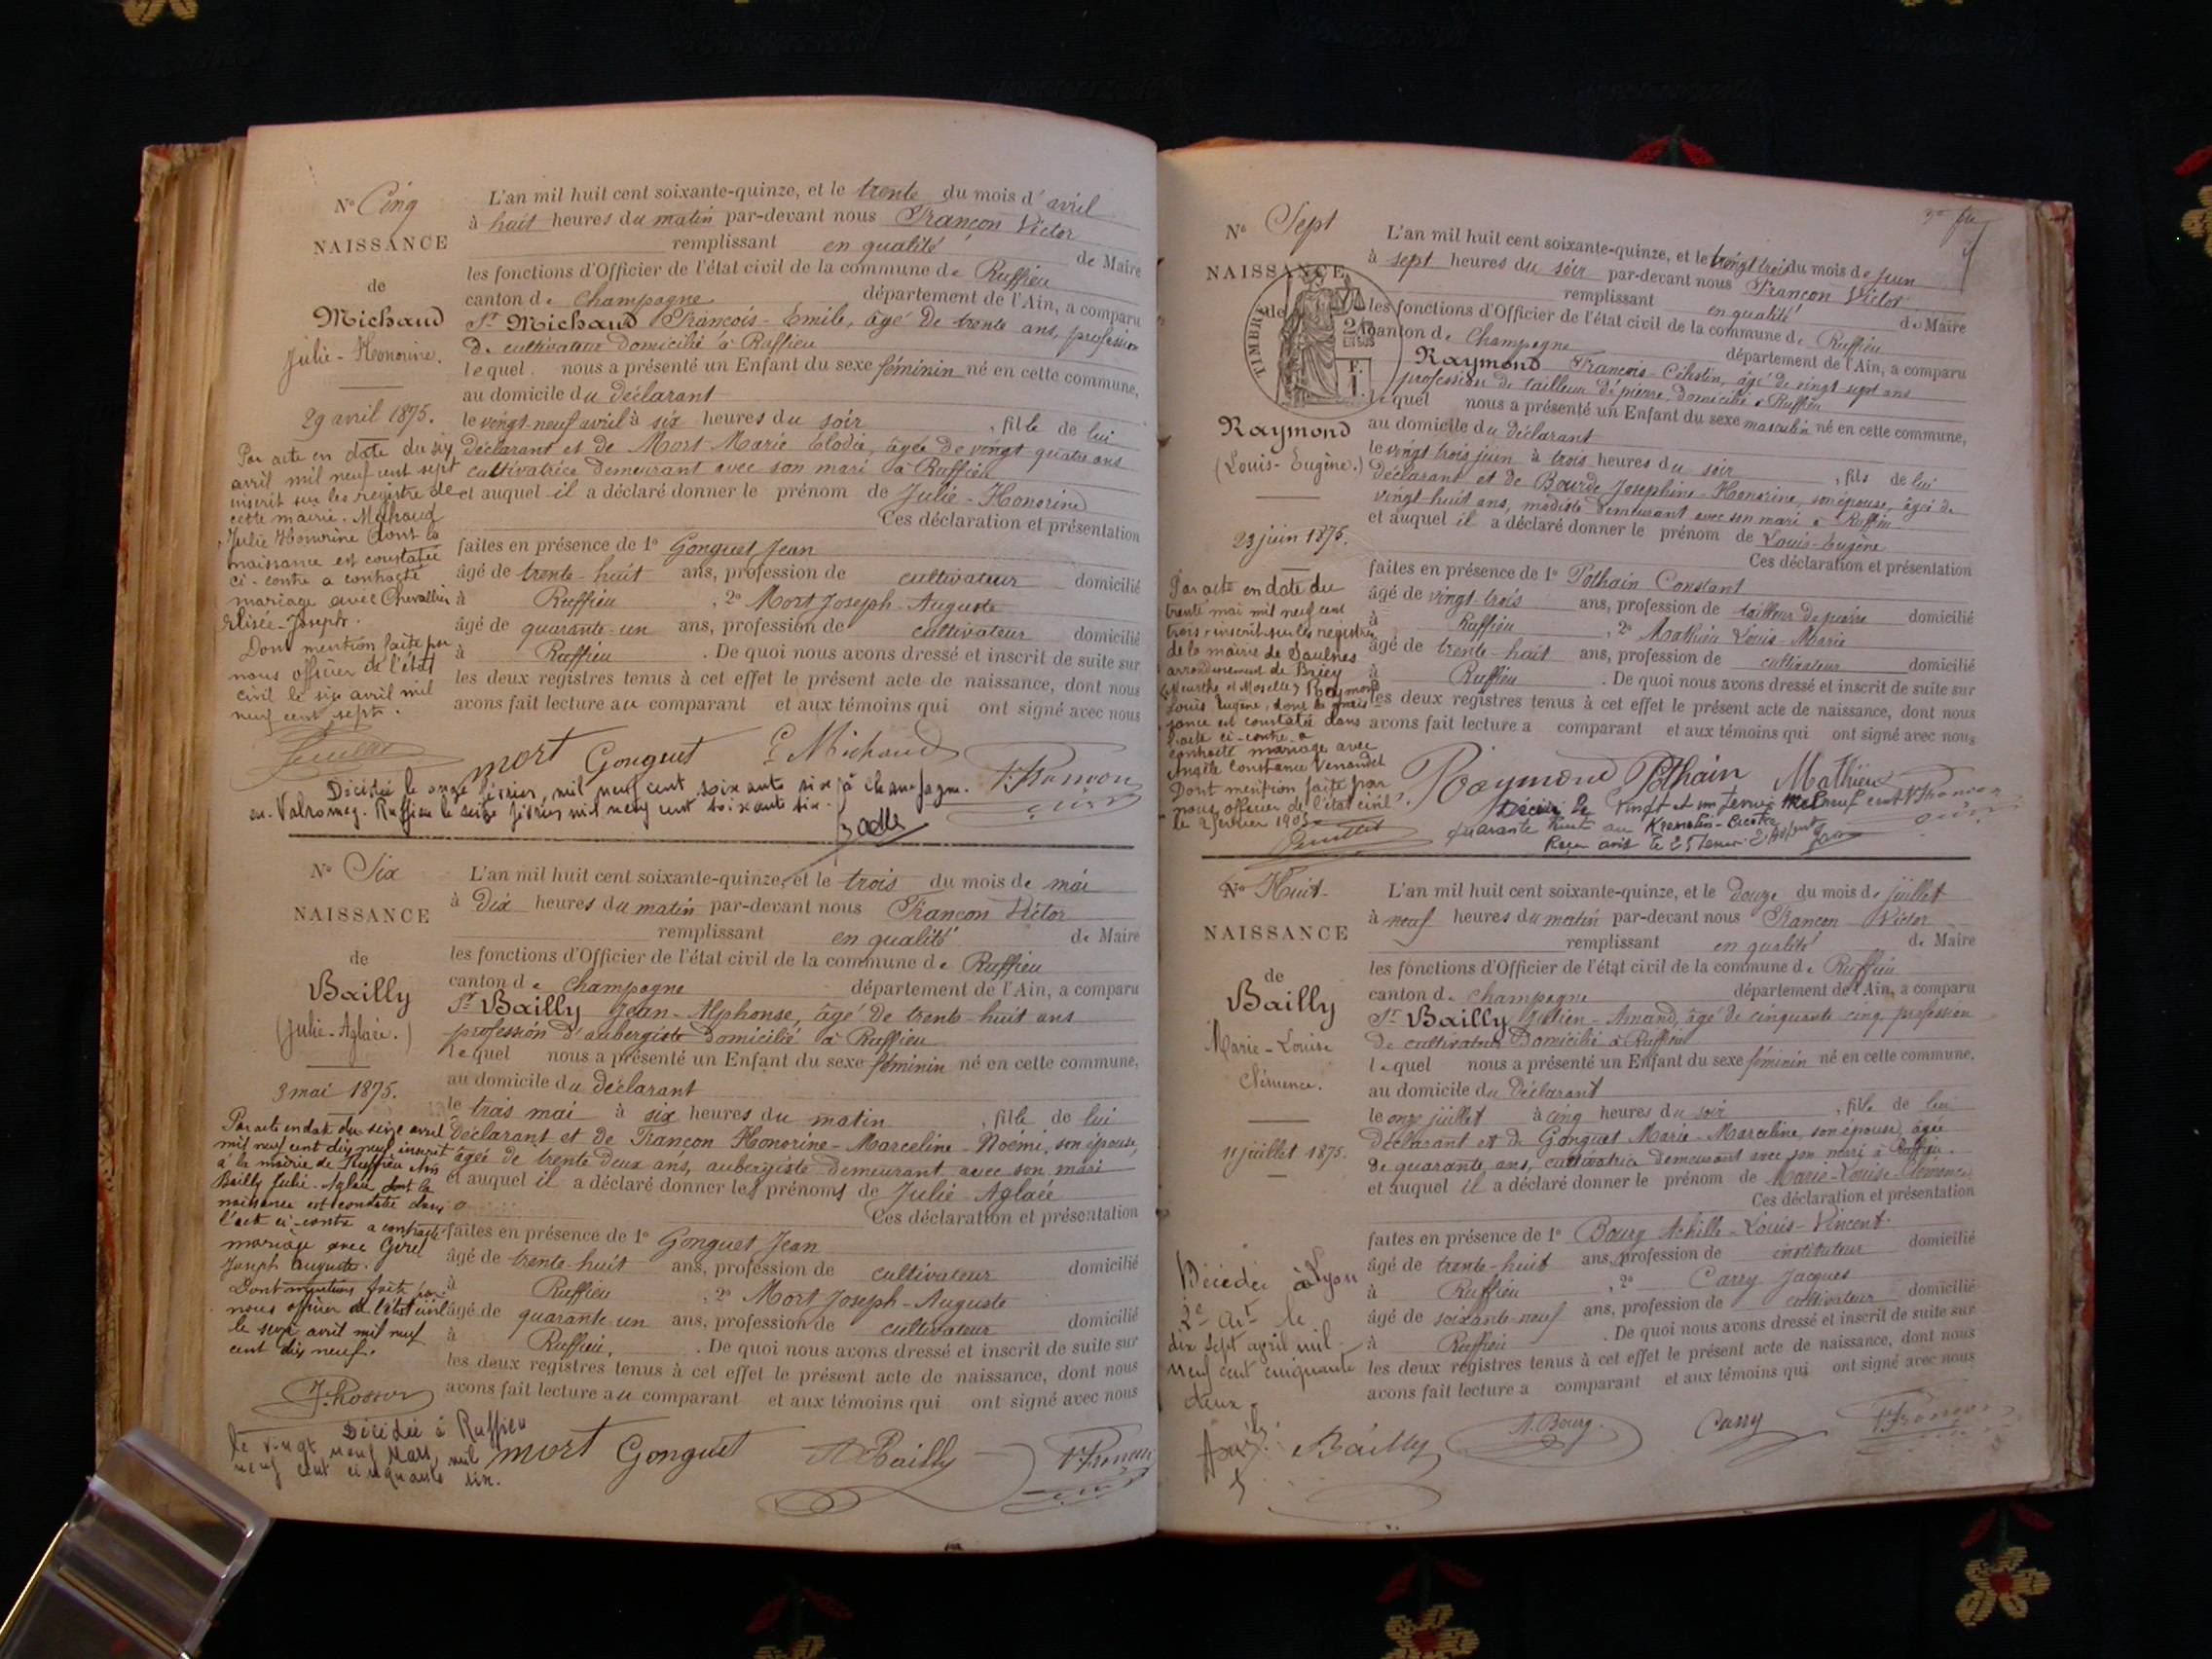 N° Cinq
NAISSANCE
de
Michaud
Julie-Honorine.
29 avril 1875.
Par acte en date du six
avril mil neuf cent sept
inscrit sur les registre de
cette mairie. Michaud
Julie Honorine dont la
naissance est constatée
ci-contre a contracté
mariage avec Chevallier
Elisée-Joseph.
Dont mention faite par
nous officier de l'état
civil le six avril mil
neuf cent sept.
L'an mil huit cent soixante-quinze, et le trente du mois d'avril
à huit heures du matin par-devant nous Françon Victor
remplissant en qualité de Maire
les fonctions d'Officier de l'état civil de la commune de Ruffieu
canton de Champagne département de l'Ain, a comparu
Sr Michaud François-Emile, âgé de trente ans, profession
de cultivateur domicilié à Ruffieu
lequel nous a présenté un Enfant du sexe féminin né en cette commune,
au domicile du déclarant
le vingt-neuf avril à six heures du soir, fille de lui
déclarant et de Mort Marie Elodie, âgée de vingt quatre ans
cultivatrice demeurant avec son mari à Ruffieu
et auquel il a déclaré donner le prénom de Julie-Honorine
Ces déclaration et présentation
faites en présence de 1° Gonguet Jean
âgé de trente-huit ans, profession de cultivateur domicilié
à Ruffieu, 2° Mort Joseph-Auguste
âgé de quarante-un ans, profession de cultivateur domicilié
à Ruffieu. De quoi nous avons dressé et inscrit de suite sur
les deux registres tenus à cet effet le présent acte de naissance, dont nous
avons fait lecture au comparant et aux témoins qui ont signé avec nous
mort Gonguet E Michaud V. Françon
Décédée le onze février, mil neuf cent soixante six à Champagne.
en-Valromey. Ruffieu le seize février mil neuf cent soixante six.
N° Six
NAISSANCE
de
Bailly
(Julie-Aglaée.)
3 mai 1875.
Par acte en date du seize avril
mil neuf cent dix neuf inscrit
à la mairie de Ruffieu Ain
Bailly Julie-Aglaée dont la
naissance est constatée dans
l'acte ci-contre a contracté
mariage avec Girel
Joseph Auguste.
Dont mention faite par
nous officier de l'état civil
le seize avril mil neuf
cent dix neuf.
L'an mil huit cent soixante-quinze, et le trois du mois de mai
à dix heures du matin par-devant nous Françon Victor
remplissant en qualité de Maire
les fonctions d'Officier de l'état civil de la commune de Ruffieu
canton de Champagne département de l'Ain, a comparu
Sr Bailly Jean-Alphonse, âgé de trente-huit ans
profession d'aubergiste domicilié à Ruffieu
lequel nous a présenté un Enfant du sexe féminin né en cette commune,
au domicile du déclarant
le trois mai à six heures du matin, fille de lui
déclarant et de Françon Honorine-Marceline-Noémi, son épouse,
âgée de trente deux ans, aubergiste demeurant avec son mari
et auquel il a déclaré donner les prénoms de Julie-Aglaée
Ces déclaration et présentation
faites en présence de 1° Gonguet Jean
âgé de trente-huit ans, profession de cultivateur domicilié
à Ruffieu, 2° Mort Joseph-Auguste
âgé de quarante-un ans, profession de cultivateur domicilié
à Ruffieu. De quoi nous avons dressé et inscrit de suite sur
les deux registres tenus à cet effet le présent acte de naissance, dont nous
avons fait lecture au comparant et aux témoins qui ont signé avec nous
Décédée à Ruffieu
le vingt neuf Mars, mil
neuf cent cinquante six.
mort Gonguet A Bailly V. Françon
N° Sept
NAISSANCE
de
TIMBRE
Raymond
(Louis-Eugène.)
23 juin 1875.
Par acte en date du
trente mai mil neuf cent
trois inscrit sur les registres
de la mairie de Saulnes
arrondissement de Briey
(Meurthe et Moselle) Raymond
Louis Eugène, dont la nais
sance est constatée dans
l'acte ci-contre a
contracté mariage avec
Angèle Constance
Dont mention faite par
nous officier de l'état civil.
L'an mil huit cent soixante-quinze, et le vingt trois du mois de Juin
à sept heures du soir par-devant nous Françon Victor
remplissant en qualité de Maire
les fonctions d'Officier de l'état civil de la commune de Ruffieu
canton de Champagne département de l'Ain, a comparu
Raymond François-Célestin, âgé de vingt sept ans
profession de tailleur de pierre domicilié à Ruffieu
lequel nous a présenté un Enfant du sexe masculin né en cette commune,
au domicile du déclarant
le vingt trois juin à trois heures du soir, fils de lui
déclarant et de Bourde Josephine-Honorine, son épouse, âgée de
vingt-huit ans, modiste demeurant avec son mari à Ruffieu
et auquel il a déclaré donner le prénom de Louis-Eugène
Ces déclaration et présentation
faites en présence de 1° Pothain Constant
âgé de vingt-trois ans, profession de tailleur de pierre domicilié
à Ruffieu, 2° Mathieu Louis-Marie
âgé de trente-huit ans, profession de cultivateur domicilié
à Ruffieu. De quoi nous avons dressé et inscrit de suite sur
les deux registres tenus à cet effet le présent acte de naissance, dont nous
avons fait lecture a comparant et aux témoins qui ont signé avec nous
Raymond Pothain Mathieu V. Françon
Décédé le Vingt et un
quarante huit au Kremlin-Bicêtre
Reçu avis le 25
N° Huit.
NAISSANCE
de
Bailly
Marie-Louise
Clémence.
11 juillet 1875.
Décédée à Lyon
2e Art le
dix sept avril mil
neuf cent cinquante
deux.
L'an mil huit cent soixante-quinze, et le douze du mois de juillet
à neuf heures du matin par-devant nous Françon Victor
remplissant en qualité de Maire
les fonctions d'Officier de l'état civil de la commune de Ruffieu
canton de Champagne département de l'Ain, a comparu
Sr Bailly Julien-Amand, âgé de cinquante cinq profession
de cultivateur domicilié à Ruffieu
lequel nous a présenté un Enfant du sexe féminin né en cette commune,
au domicile du déclarant
le onze juillet à cinq heures du soir, fille de lui
déclarant et de Gonguet Marie-Marceline, son épouse, âgée
de quarante ans, cultivatrice demeurant avec son mari à Ruffieu.
et auquel il a déclaré donner le prénom de Marie-Louise-Clémence
Ces déclaration et présentation
faites en présence de 1° Bourg Achille-Louis-Vincent.
âgé de trente-huit ans, profession de instituteur domicilié
à Ruffieu, 2° Carry Jacques
âgé de soixante-neuf ans, profession de cultivateur domicilié
à Ruffieu. De quoi nous avons dressé et inscrit de suite sur
les deux registres tenus à cet effet le présent acte de naissance, dont nous
avons fait lecture a comparant et aux témoins qui ont signé avec nous
Bailly A. Bourg. Carry V. Françon